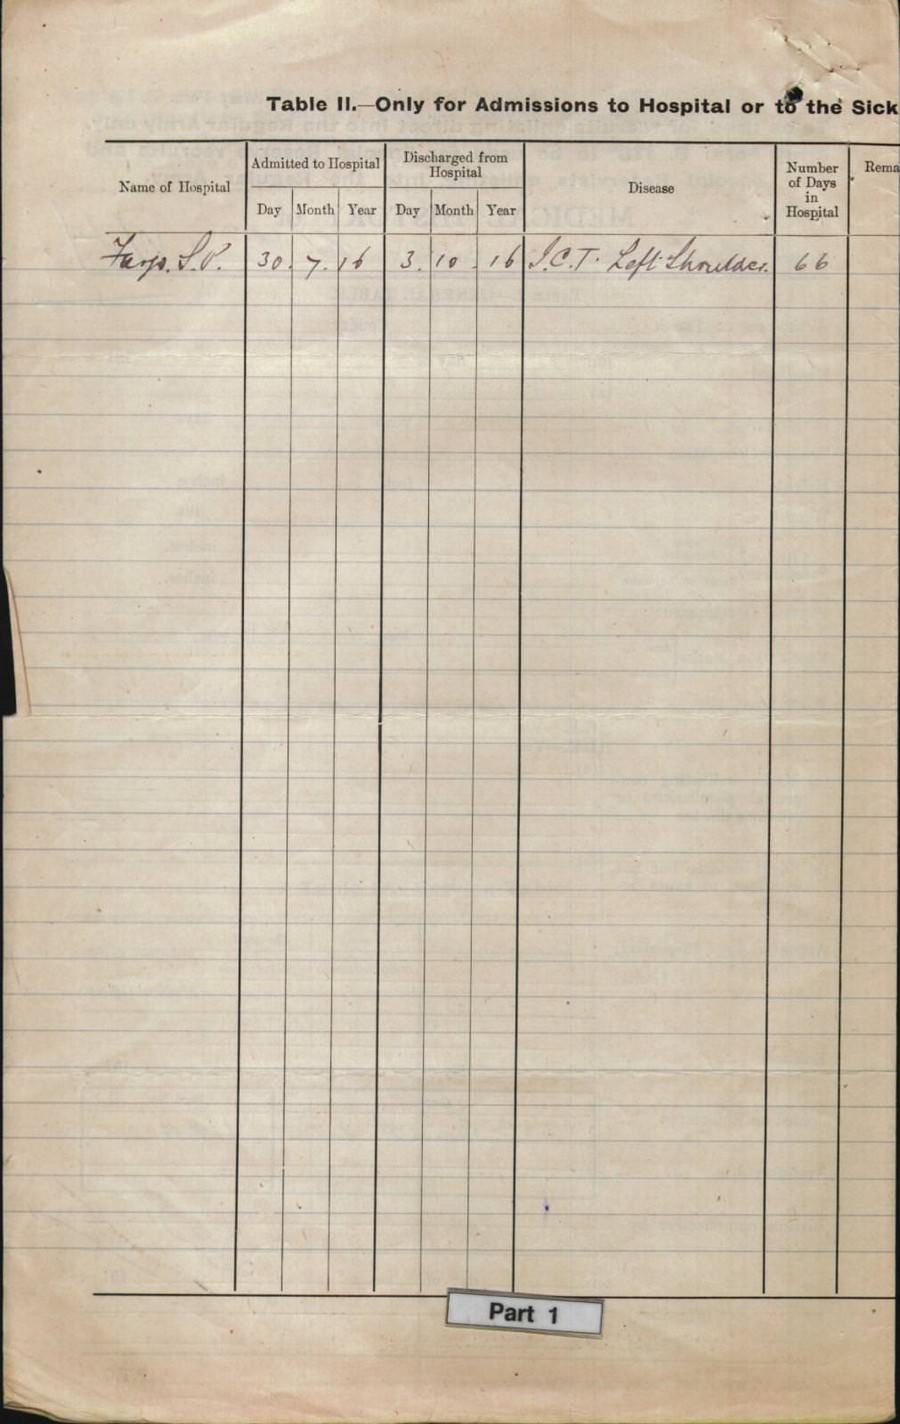 Table II.—Only for Admissions to Hospital or to the Sick
Name of Hospital
Admitted to Hospital
Discharged from
Hospital
Disease
Number
of Days
in
Hospital
Rema
Day Month Year Day Month Year
30. 7. 16 3. 10. 16 I.C.T. Left Shoulder. 66
Part 1